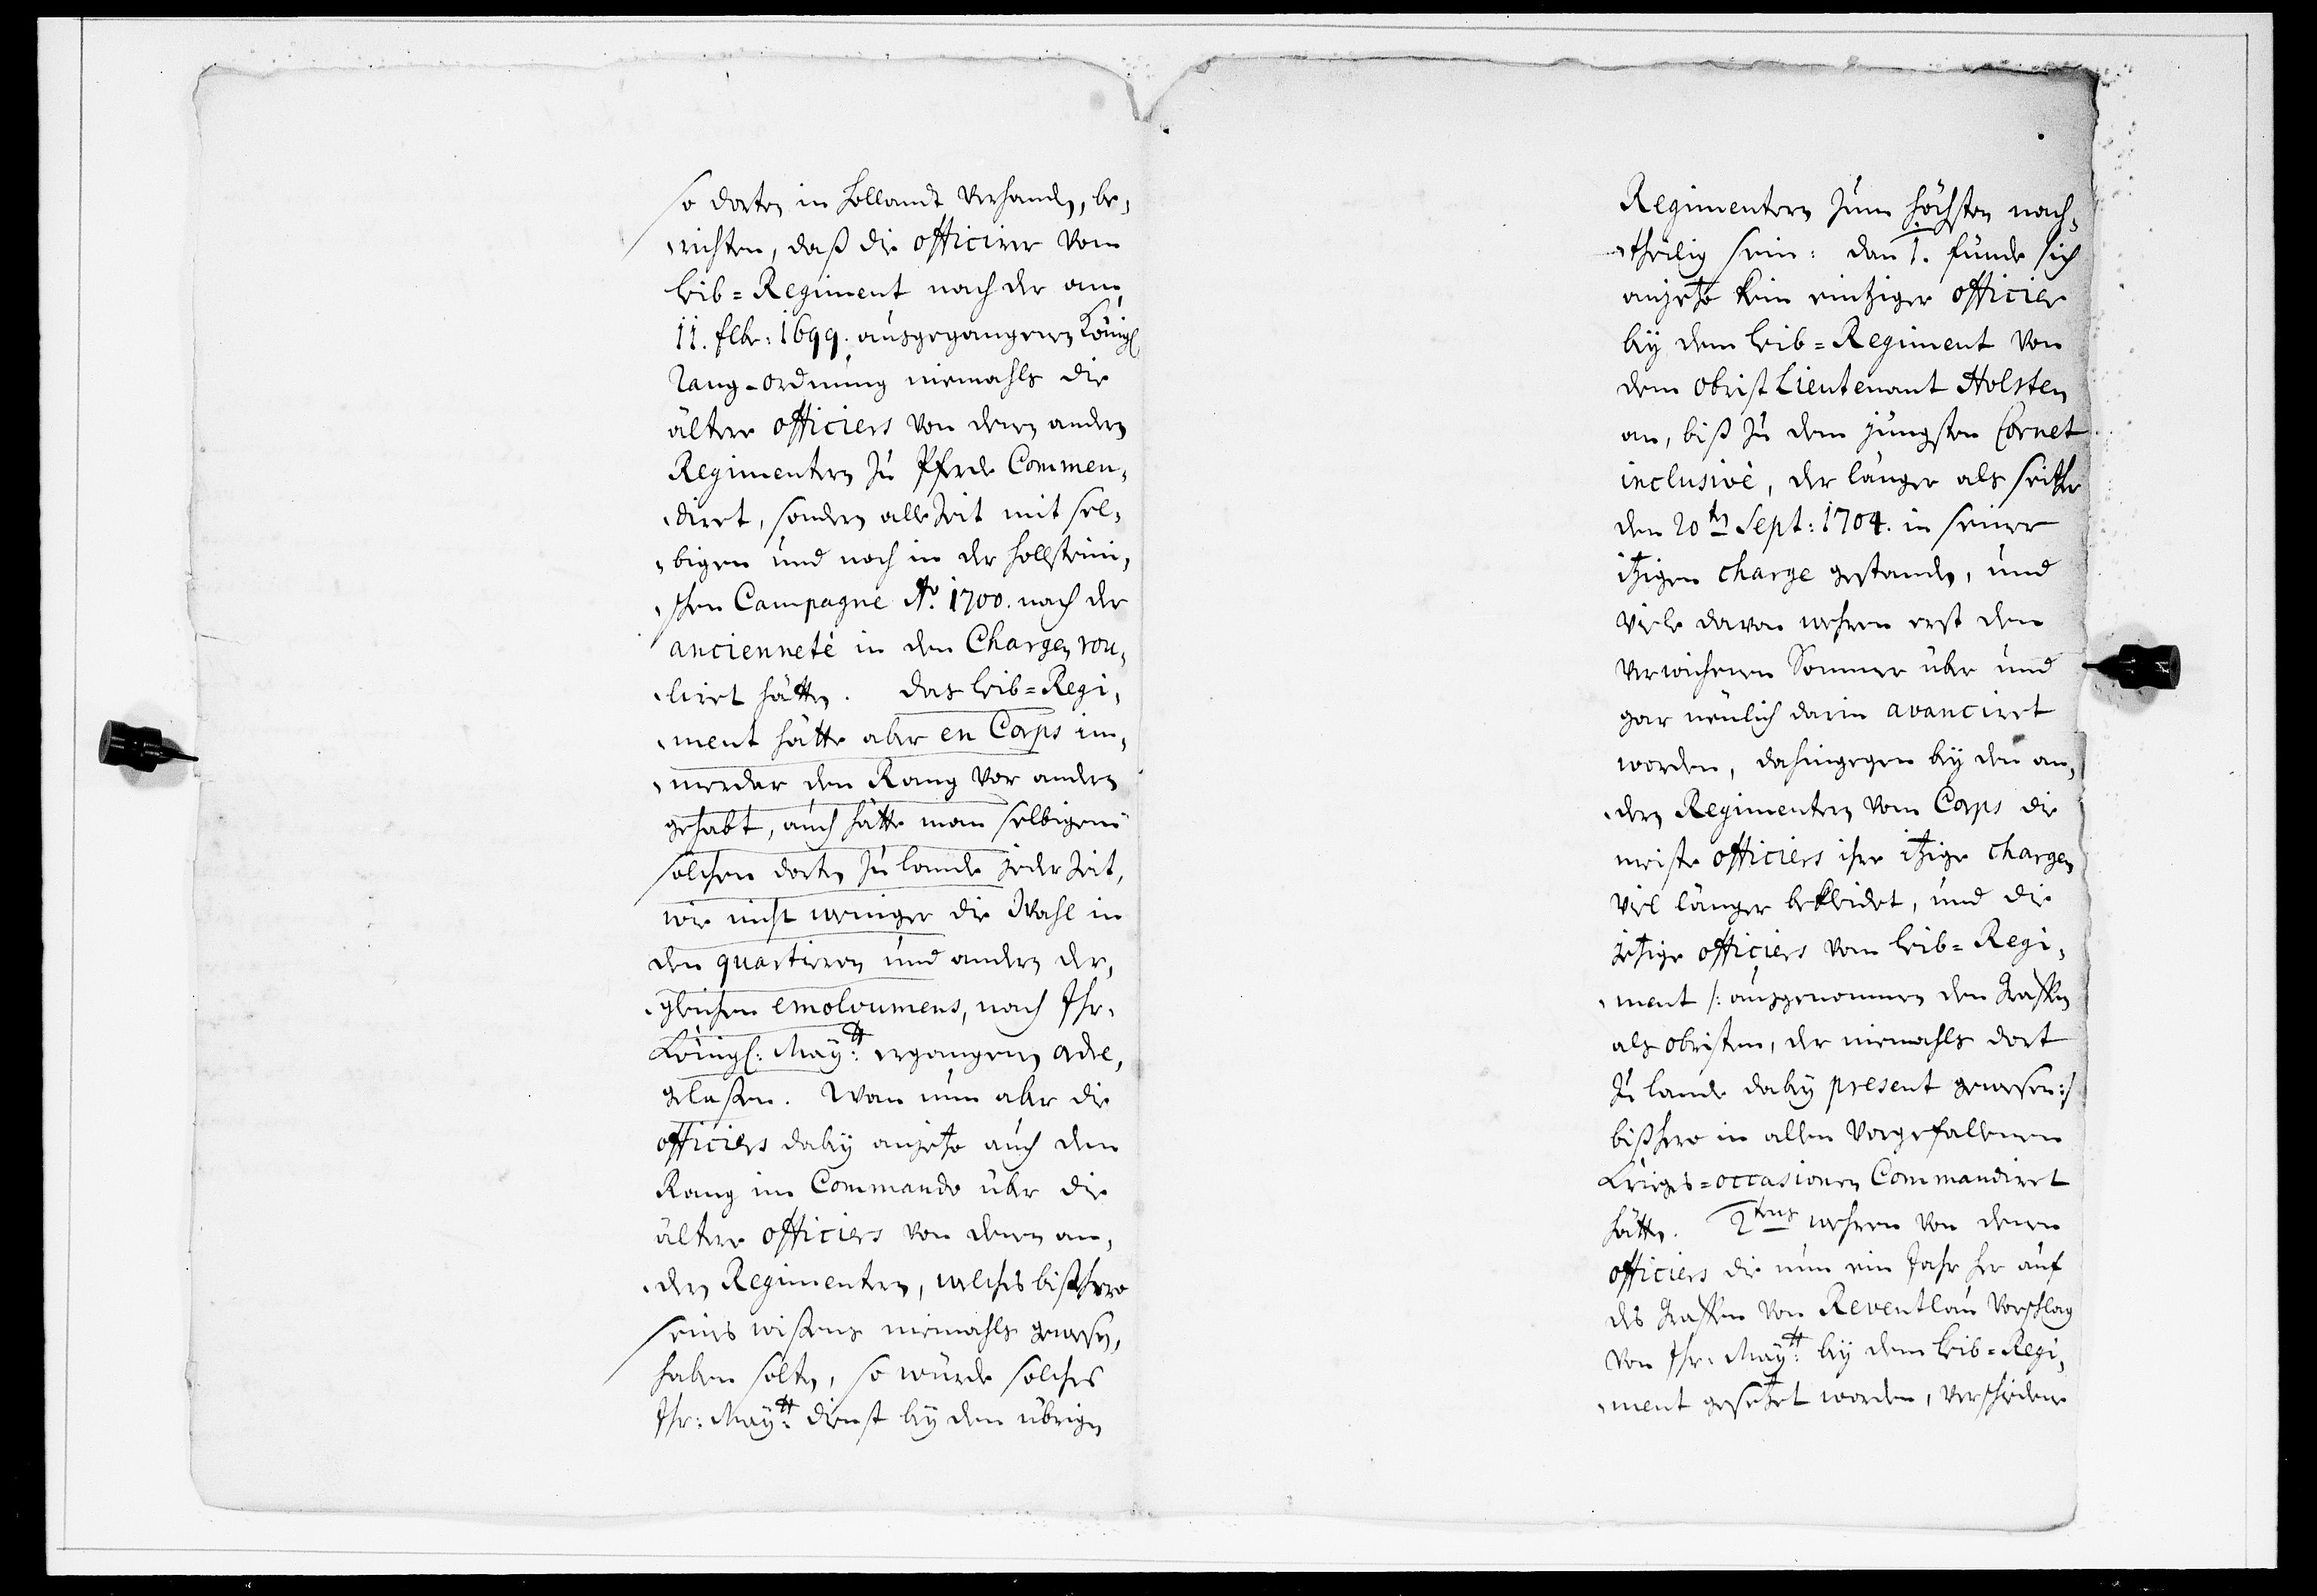 so dorten in Hollandt verhanden, be,
richten, daß die officirer vom
Leib=Regiment nach der am
11. febr: 1699. ausgegangenen Königl
Rang-ordnung niemahls die
ältere officiers von denen andern
Regimentern zu Pferde Commen,
diret, sondern allezeit mit sel,
bigen und noch in der Hollsteini,
schen Campagne Aō. 1700. nach der
ancienneté in den Chargen rou,
liret hätten. das Leib=Regi,
ment hätte aber en Corps im,
merdar den Rang vor andern
gehabt, auch hätte man selbigem
solchen dorten zu lande jederzeit,
wie nicht weniger die Wahl in
den quartieren und andern der,
gleichen emoloumens, nach Ihr.
Königl: Maytt: ergangenen ordre,
gelaßen. Wan nun aber die
officiers dabey anjetzo auch den
Rang im Commando über die
ältere officiers von denen an,
dern Regimentern, welches bißhero
seines wißens niemahls gewesen,
haben solten, so würde solches
Ihr: Maytt: dienst bey den übrigen
Regimentern zum höchsten nach,
theilig sein: dan 1. fünde sich
anjetzo kein eintziger officier
bey dem Leib=Regiment von
dem obrist Lieutenant Holsten
an, biß zu dem jüngsten Cornet
inclusivè, der länger als seither
den 20ten Sept: 1704. in seiner
itzigen charge gestanden, und
viele davon wehren erst den
verwichenen Sommer über und
gar neulich darin avanciret
worden, dahingegen bey den an,
dern Regimentern vom Corps die
meiste officiers ihre itzige chargen
viel länger bekleidet, und die
jetzige officiers vom Leib=Regi,
ment /: ausgenommen den Graffen
als obristen, der niemahls dort
zu lande dabey present gewesen :/
bißhero in allen vorgefallenen
Krieges=occasionen Commandiret
hätten. 2tens wehren von denen
officiers die nun ein Jahr her auf
des Graffen von Reventlau vorschlag
von Ihr: Maytt: bey dem Leib=Regi,
ment gesetzet worden, verschiedene